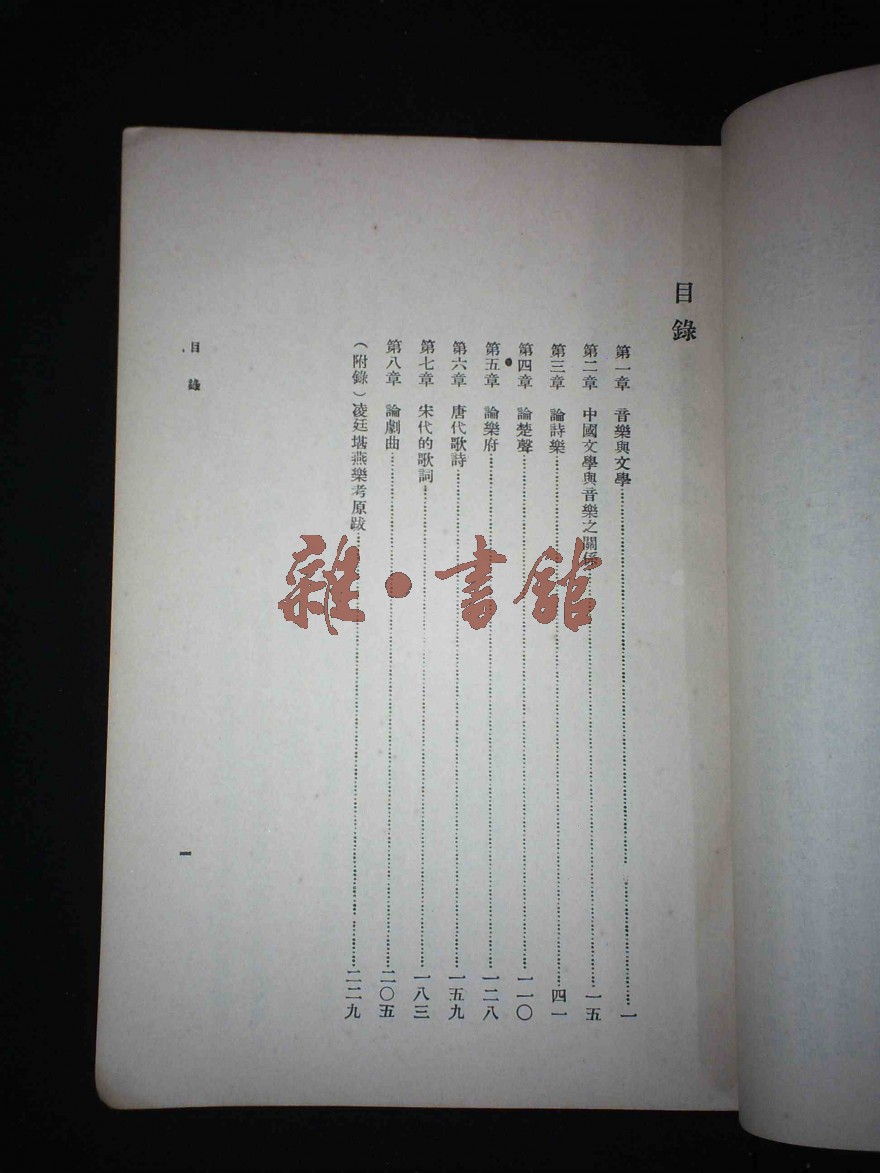 目錄
第一章 音樂與文學……一
第二章 中國文學與音樂之關係……一五
第三章 論詩樂……四一
第四章 論楚聲……一一〇
第五章 論樂府……一二八
第六章 唐代歌詩……一五九
第七章 宋代的歌詞……一八三
第八章 論劇曲……二〇五
(附錄)凌廷堪燕樂考原跋……二二九
目錄
一
雜·書館